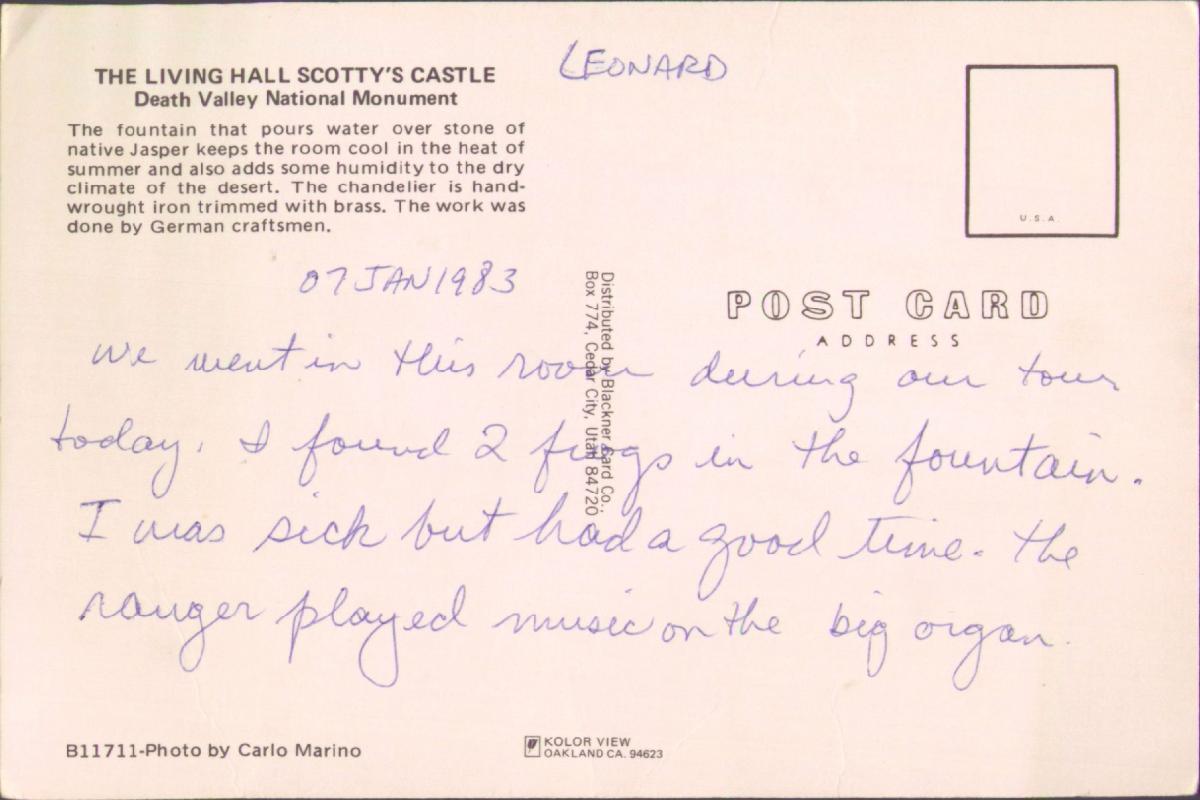 LEONARD
THE LIVING HALL SCOTTY'S CASTLE
Death Valley National Monument
The fountain that pours water over stone of
native Jasper keeps the room cool in the heat of
summer and also adds some humidity to the dry
climate of the desert. The chandelier is hand-
wrought iron trimmed with brass. The work was
done by German craftsmen.
U.S.A.
07 JAN 1983
POST CARD
ADDRESS
Distributed by Blackner Card Co.,
Box 774, Cedar City, Utah 84720
We went in this room during our tour
today. I found 2 frogs in the fountain.
I was sick but had a good time. The
ranger played music on the big organ.
B11711-Photo by Carlo Marino
KOLOR VIEW
OAKLAND CA. 94623